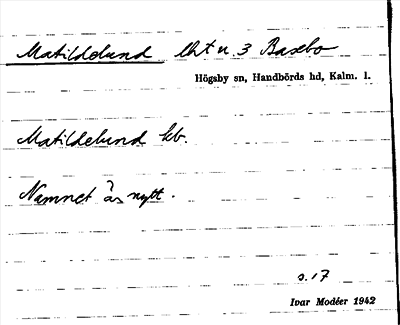 Matildelund lht u. 3 Baxebo
Högsby sn, Handbörds hd, Kalm. l.
Matildelund kb.
Namnet är nytt.
s. 17
Ivar Modéer 1942